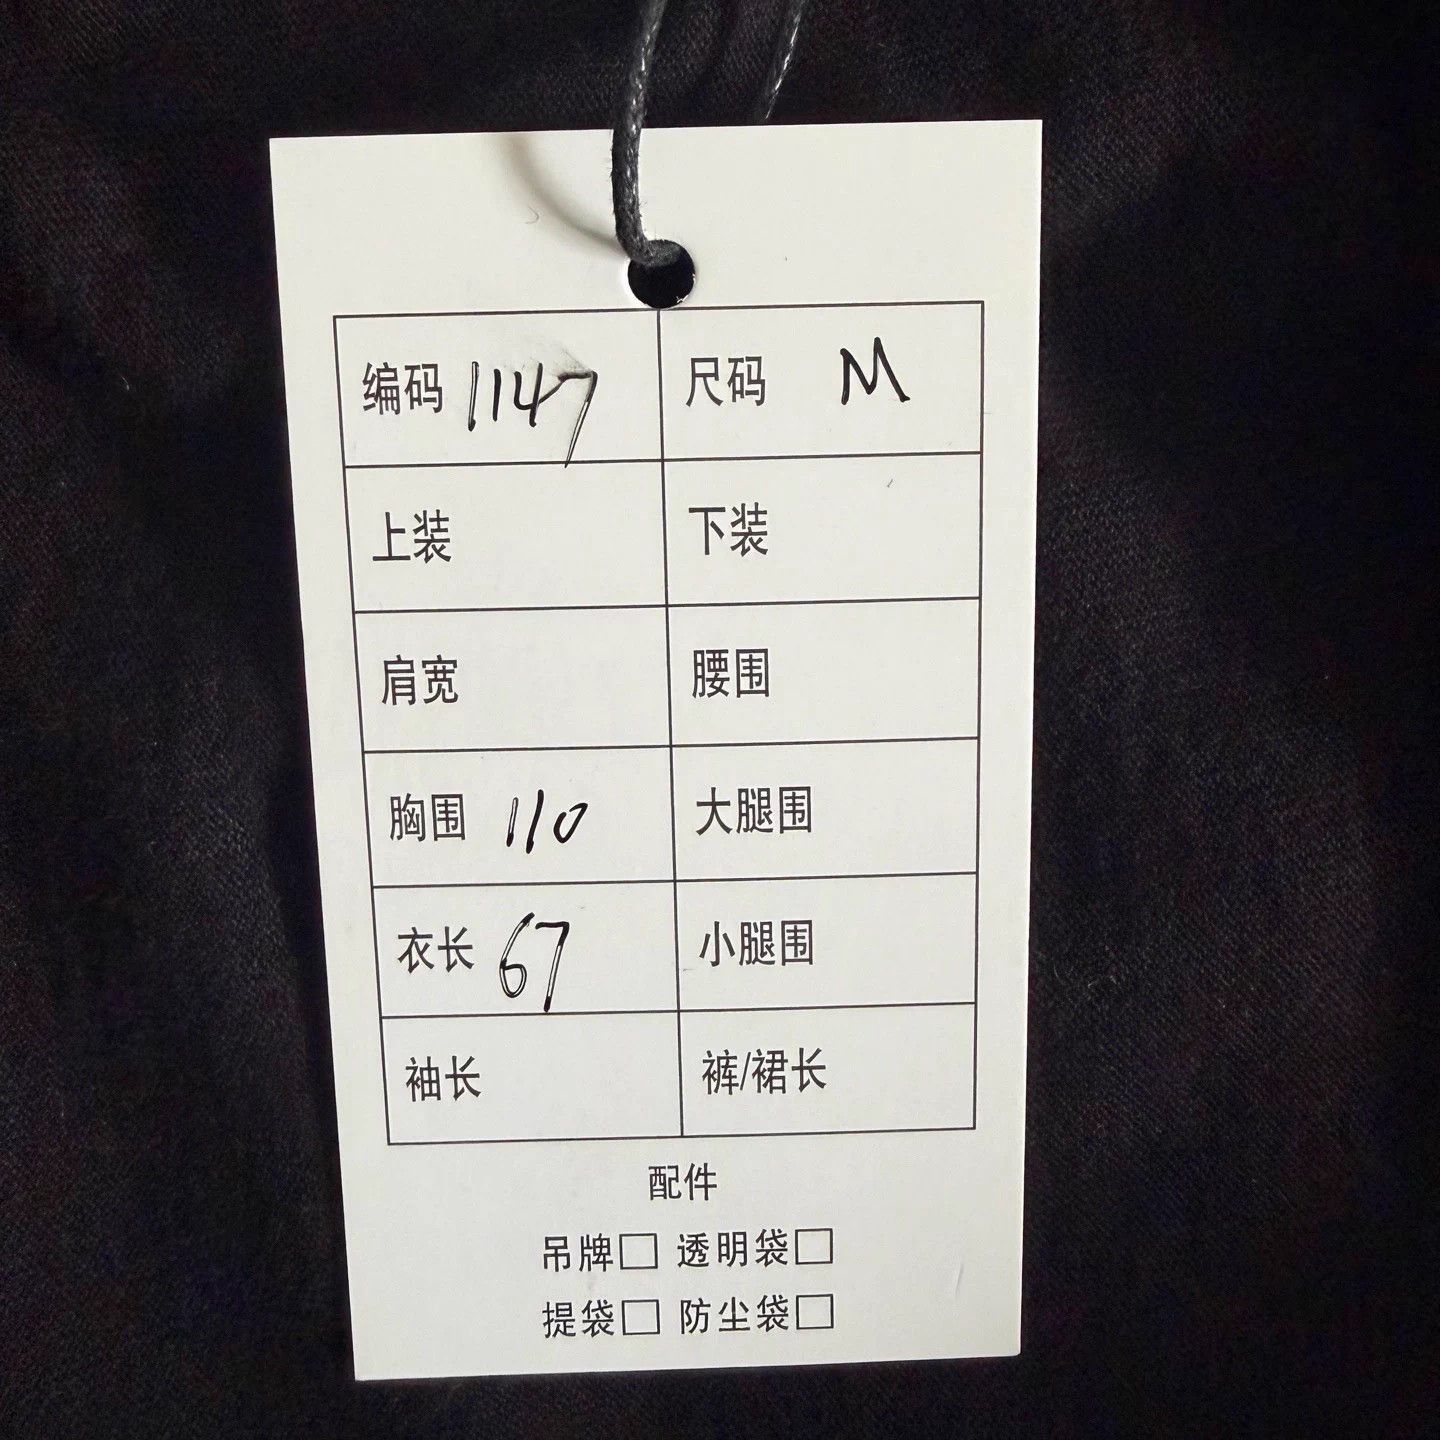 编码 1147 尺码 M
上装 下装
肩宽 腰围
胸围 110 大腿围
衣长 67 小腿围
袖长 裤/裙长
配件
吊牌□ 透明袋□
提袋□ 防尘袋□